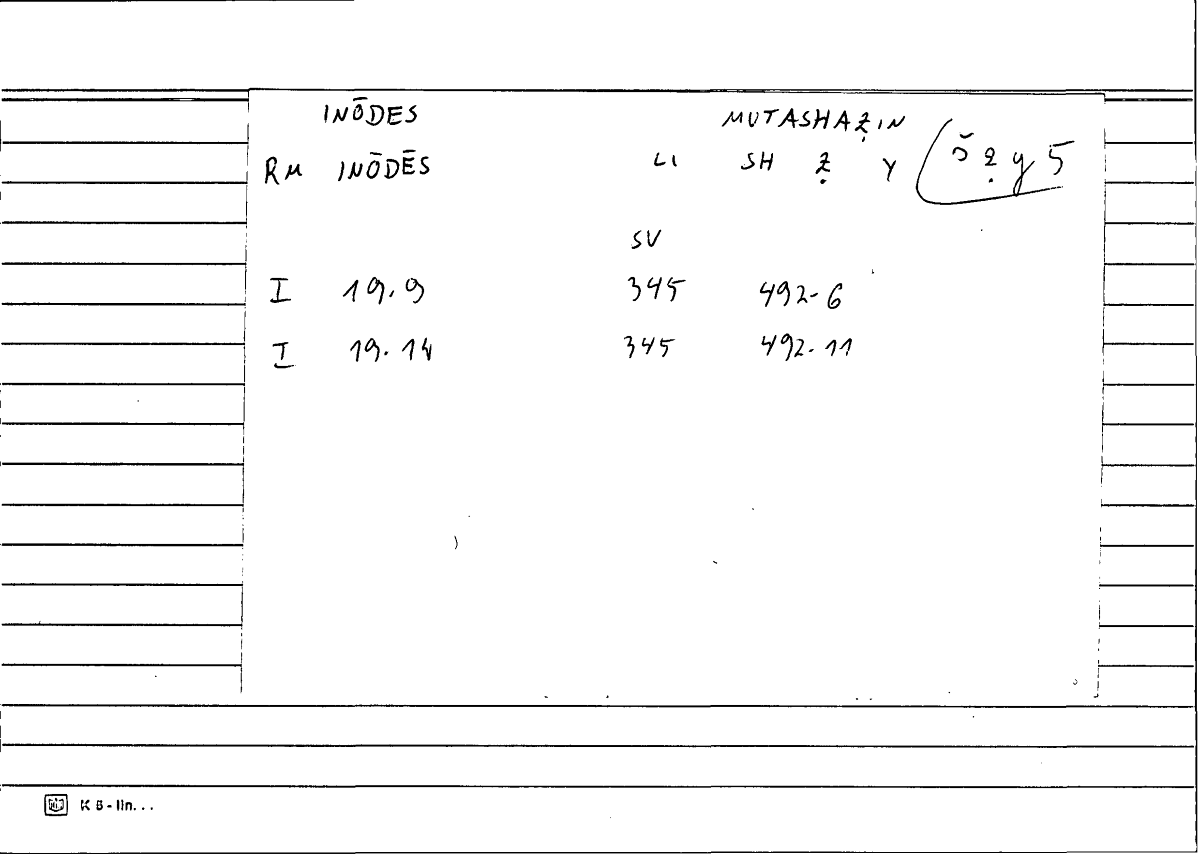 INŌDES MUTASHAẒIN
RM INŌDĒS LI SH Ẓ Y š ẓ y 5
SV
I 19.9 345 492-6
I 19.14 345 492-11
K 8-lin...